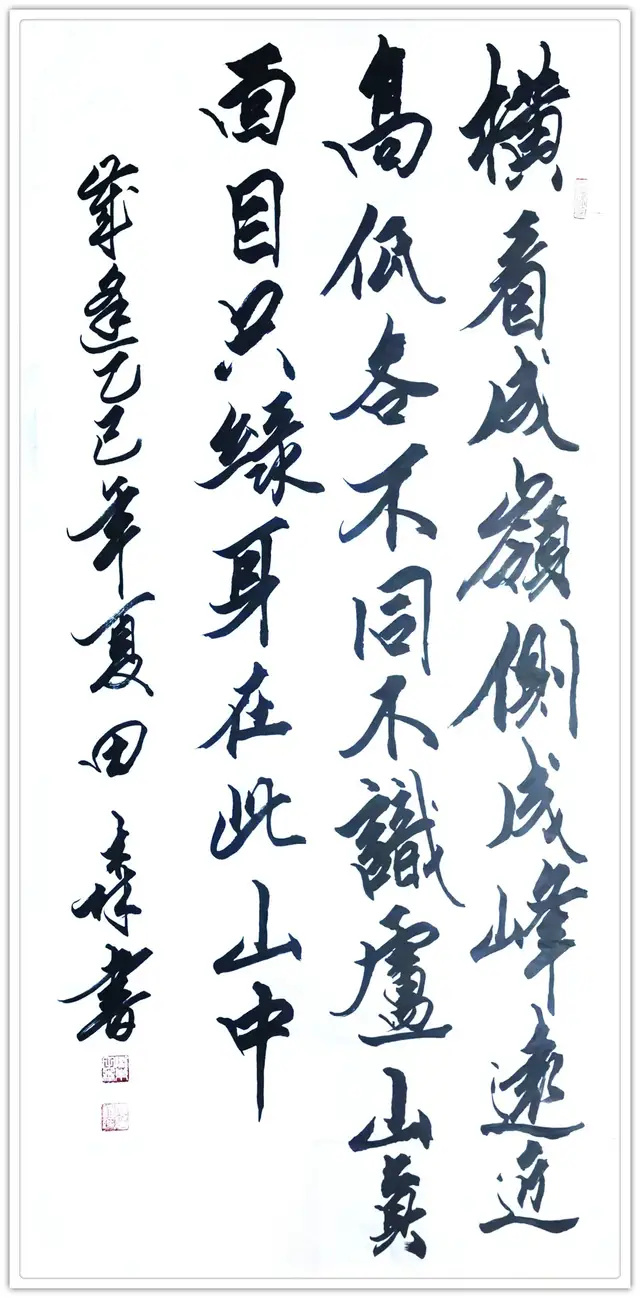 橫看成嶺側成峰遠近
高低各不同不識廬山真
面目只緣身在此山中
歲逢乙巳年夏田森書